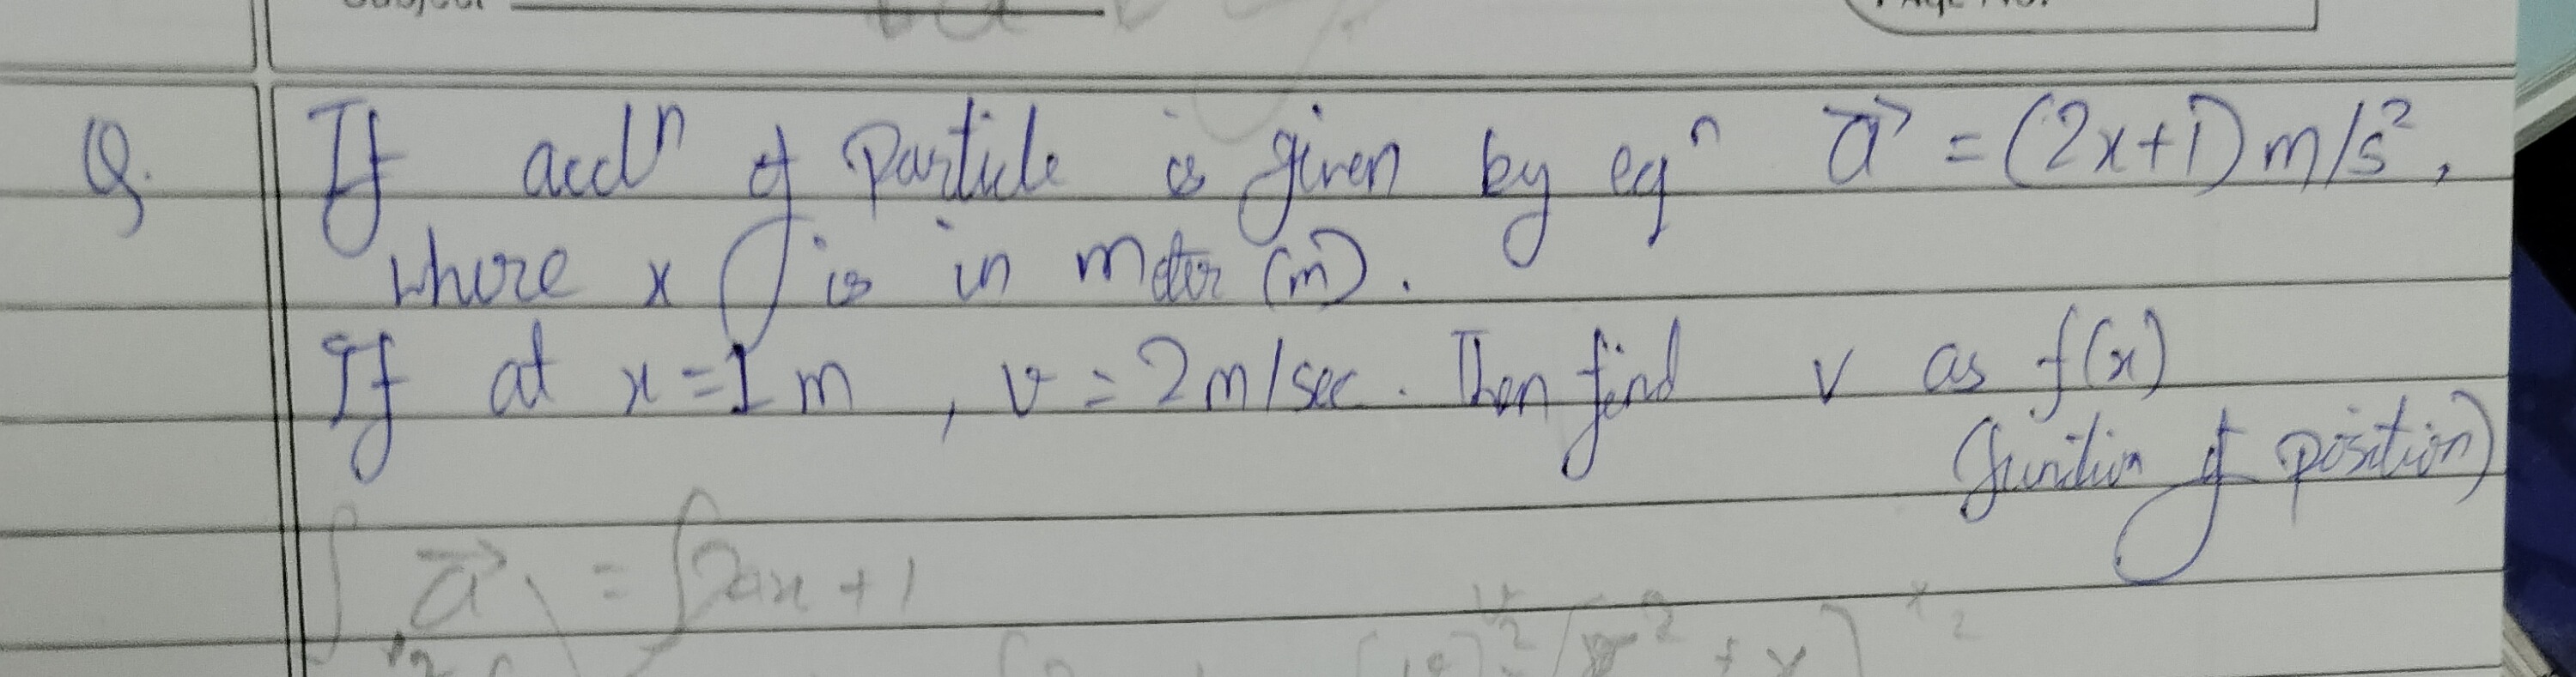 Subject
Page No.
Q. If accln of Particle is given by eqn a⃗ = (2x+1) m/s²,
where x is in meter (m).
If at x=1 m, v = 2 m/sec. Then find v as f(x)
(function of position)
∫ a⃗ = ∫ 2x + 1